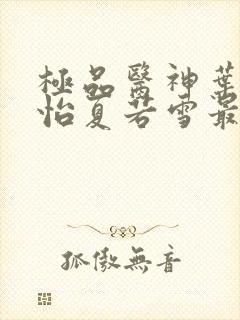 極品醫神葉
怡夏若雪最
孤傲無音